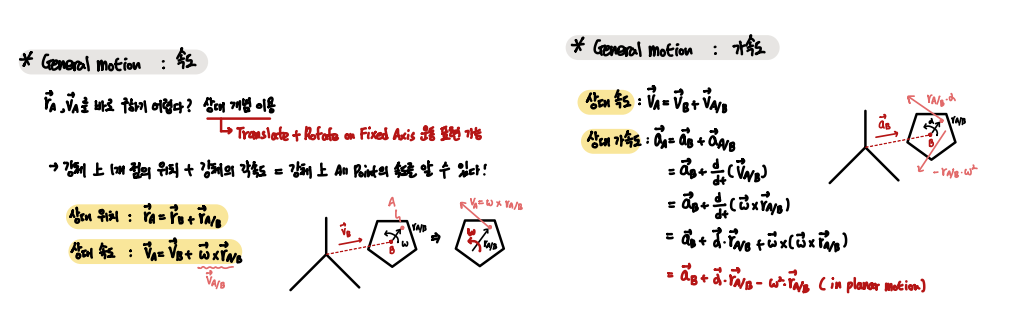 * General motion : 속도
r⃗A, v⃗A를 바로 구하기 어렵다? 상대 개념 이용
↳ Translate + Rotate on Fixed Axis 운동 표현 가능
→ 강체 上 1개 점의 위치 + 강체의 각속도 = 강체 上 All Point의 속도를 알 수 있다!
상대 위치 : r⃗A = r⃗B + r⃗A/B
상대 속도 : v⃗A = v⃗B + ω⃗ × r⃗A/B
v⃗A/B
A
v⃗B
rA/B
ω
B
⇒
vA = ω × rA/B
ω
rA/B
* General motion : 가속도
상대 속도 : v⃗A = v⃗B + v⃗A/B
상대 가속도 : a⃗A = a⃗B + a⃗A/B
= a⃗B + d/dt (v⃗A/B)
= a⃗B + d/dt (ω⃗ × r⃗A/B)
= a⃗B + α⃗ · r⃗A/B + ω⃗ × (ω⃗ × r⃗A/B)
= a⃗B + α⃗ · r⃗A/B - ω² · r⃗A/B ( in planar motion)
rA/B · α
a⃗B
α
rA/B
B
- rA/B · ω²